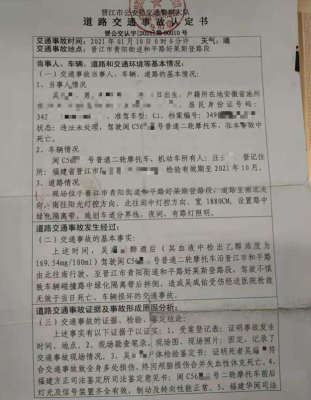 晋江市公安局交通警察大队
道路交通事故认定书
晋公交认字[2021]第00010号
交通事故时间：2021年01月10日0时0分许 天气：晴
交通事故地点：晋江市青阳街道和平路好莱斯登路段
当事人、车辆、道路和交通环境等基本情况：
(一)交通事故当事人、车辆、道路的基本情况
1、当事人情况
吴 男， 日出生，户籍所在地安徽省池州
居民身份证号码：
342 准驾车型：C1，档案编号：349
状态：违法未处理，驾驶闽C56 号普通二轮摩托车，在本事故中
死亡。
2、车辆情况
闽C56 号普通二轮摩托车，机动车所有人： 登记住
所：福建省晋江市 检验有效期至2021年10月。
3、道路情况
现场位于晋江市青阳街道和平路好莱斯登路段，道路呈南北走
向，南往阳光灯控方向，北往 灯控方向，宽1880CM，设置路中
绿化隔离带，施划车道分界线，夜间，有路灯照明。
道路交通事故发生经过：
(二)交通事故的基本事实：
上述时间，吴 醉酒后(吴血液中检出乙醇浓度为
169.54mg/100ml)驾驶闽C56 号普通二轮摩托车沿晋江市和平路
由北往南行驶，至晋江市青阳街道和平路好莱斯登路段，驾驶不慎
致车辆碰撞路中绿化隔离带后摔倒，造成吴 受伤经送医院抢救
无效于当日死亡、车辆损坏的交通事故。
道路交通事故证据及事故形成原因分析：
(三)交通事故的证据、检验、鉴定结论：
上述事实有以下证据予以证实：1、受案登记表：证明事故发生
时间、地点。2、现场勘查笔录、现场图、现场照片：固定、记录了
交通事故现场情况。3、吴 尸体检验鉴定书：证明死者吴 符
合交通事故致全身多处损伤，终因颅脑损伤合并失血性休克死亡。4、
福建方正司法鉴定所司法鉴定意见书：闽C56 号二轮摩托车前后
灯光及信号装置齐全有效，制动及转向性能正常。5、福建华闽司法